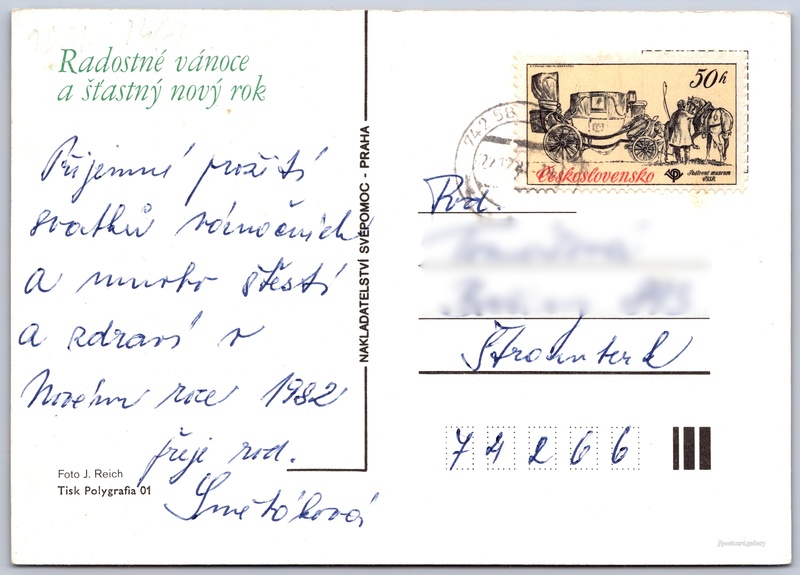 Radostné vánoce
a šťastný nový rok
Příjemné prožití
svátků vánočních
a mnoho štěstí
a zdraví v
Novém roce 1982
přeji rod.
Smětáková
Foto J. Reich
Tisk Polygrafia 01
NAKLADATELSTVÍ SVÉPOMOC - PRAHA
742 58
50h
Československo
Poštovní muzeum
ČSSR
Rod.
Štramberk
74266